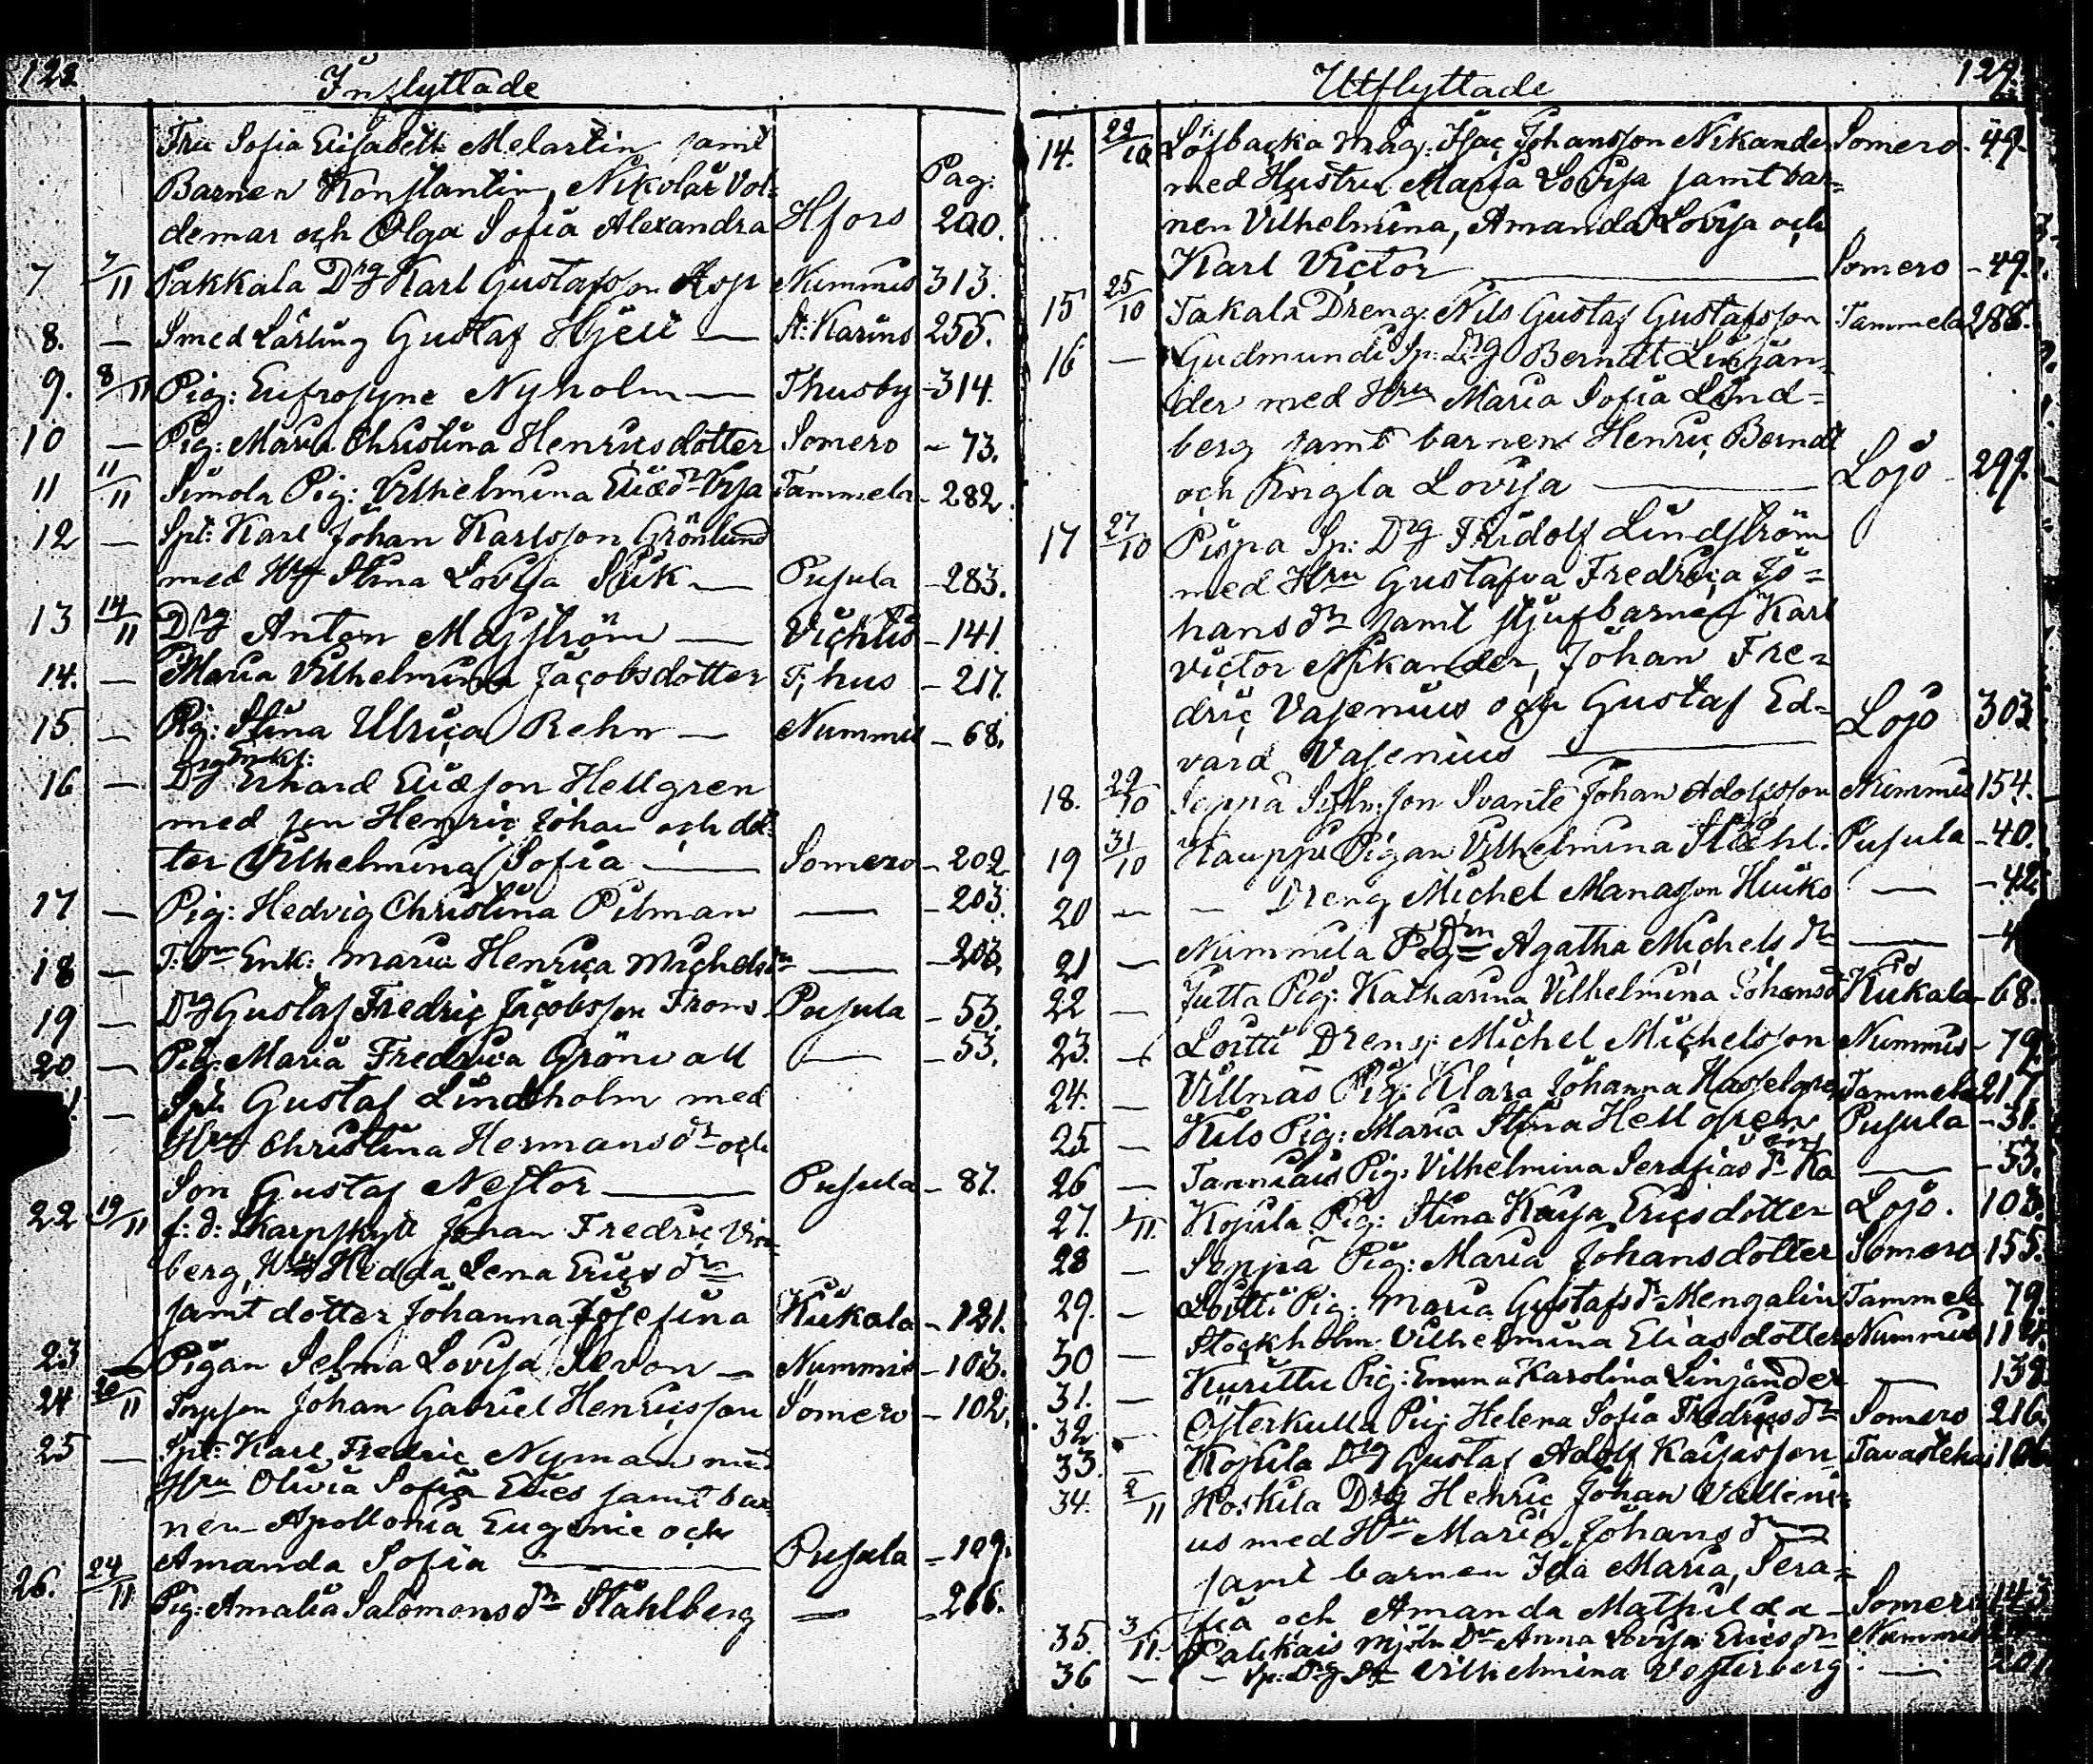 122 Inflyttade
Fru Sofia Elisabeth Melartin samt
Barnen Konstantin, Nikolai Vol= Pag:
demar och Olga Sofia Alexandra Hfors 200.
7 7/11 Pakkala Drg Karl Gustafsson Asp Nummis 313.
8. — Smed Lärling Gustaf Hjell — St: Karins 255.
9. 8/11 Pig: Eufrosyne Nyholm — Thusby - 314.
10 — Pig: Maria Christina Henricsdotter Somero - 73.
11 11/11 Simola Pig: Vilhelmina Tammela - 282.
12 — Spt: Karl Johan Karlsson Grönlund
med Stina Lovisa — Pusula - 283.
13 14/11 Drg Anton Majström — Vichtis - 141.
14. — Maria Vilhelmina Jacobsdotter T; hus - 217.
15 — Pig: Stina Ulrica Rehn — Nummis - 68.
16 — Drg Enkl: Erhard Ericsson Hellgren
med son Henric Johan och dot
ter Vilhelmina Sofia — Somero - 202
17 — Pig: Hedvig Christina Pilman — - 203.
18 — Enk: Maria Henrica Michelsdr — - 203.
19 — Drg Gustaf Fredric Jacobsson From Pusula - 53.
20 — Pig: Maria Fredrica Grönvall — - 53.
— Spt: Gustaf Lindholm med
Hru Christina Hermansdr och
Son Gustaf Nestor — Pusula - 87.
22 19/11 f: d: Skarpskytt Johan Fredric
berg, Hru Hedda Lena Ericsdr
samt dotter Johanna Josefina Kiikala - 121.
23 — Pigan Selma Lovisa Levon — Nummis - 103.
24 20/11 Torpson Johan Gabriel Henricsson Somero - 102.
25 — Spt: Karl Fredric Nyman med
Hru Olivia Sofia Erics samt bar
nen Apollonia Eugenie och
Amanda Sofia — Pusula - 109.
26. 24/11 Pig: Amalia Salomonsdr Ståhlberg — - 266.
Utflyttade 124.
14. 22/10 Löfbacka Måg: Isac Johansson Nikander Somero - 49.
med Hustru Maria Lovisa samt bar=
nen Vilhelmina, Amanda Lovisa och
Karl Victor — Somero - 49.
15 25/10 Takala Dreng: Nils Gustaf Gustafsson Tammela 288.
16 — Gudmundi Sp: Drg Berndt Linjän=
der med Hru Maria Sofia Lind=
berg samt barnen Henric Berndt
och Lovisa — Lojo 299.
17 27/10 Pispa Sp: Drg Fridolf Lindström
med Hru Gustafva Fredrica Jo=
hansdr samt stjufbarnen Karl
Victor Nikander, Johan Fre=
dric Vasenius och Gustaf Ed=
vard Vasenius — Lojo 303
18. 29/10 Seppä son Svante Johan Adolfsson Nummis 154.
19 31/10 Hauppi Pigan Vilhelmina Ståhl: Pusula - 40.
20 — — Dreng Michel Manasson Huiko — - 42
21 — Nummila Agatha Michelsdr — - 4
22 — Jutta Pig: Katharina Vilhelmina Johansd Kiikala - 68.
23. — Loitti Dreng: Michel Michelsson Nummis - 79.
24. — Villnäs Pig: Klara Johanna Hasselgren Tammela 217.
25 — Kilo Pig: Maria Stina Hellgren Pusula - 31.
26 — Pig: Vilhelmina Serafiasdr — - 53.
27. 1/11. Kopula Pig: Stina Kaisa Ericsdotter Lojo. 103.
28 — Seppä Pig: Maria Johansdotter Somero 155.
29. — Loitti Pig: Maria Gustafsdr Mengalin Tammela 79.
30 — Stockholm Vilhelmina Eliasdotter Nummis
31. — Kurittu Pig: Emma Karolina Linjander — 138.
32 — Österkulla Pig: Helena Sofia Fredricsdr Somero 216.
33. — Kopula Drg Gustaf Adolf Tavastehus
34. 2/11 Koskila Drg Henric Johan Valleni=
us med Hru Maria Johansdr
samt barnen Ida Maria, Sera=
fia och Amanda Mathilda — Somero 143
35. 3/11. Palikais Anna Lovisa Ericsdr Nummis
36 — — Sp: Drg Vilhelmina Vesterberg: —